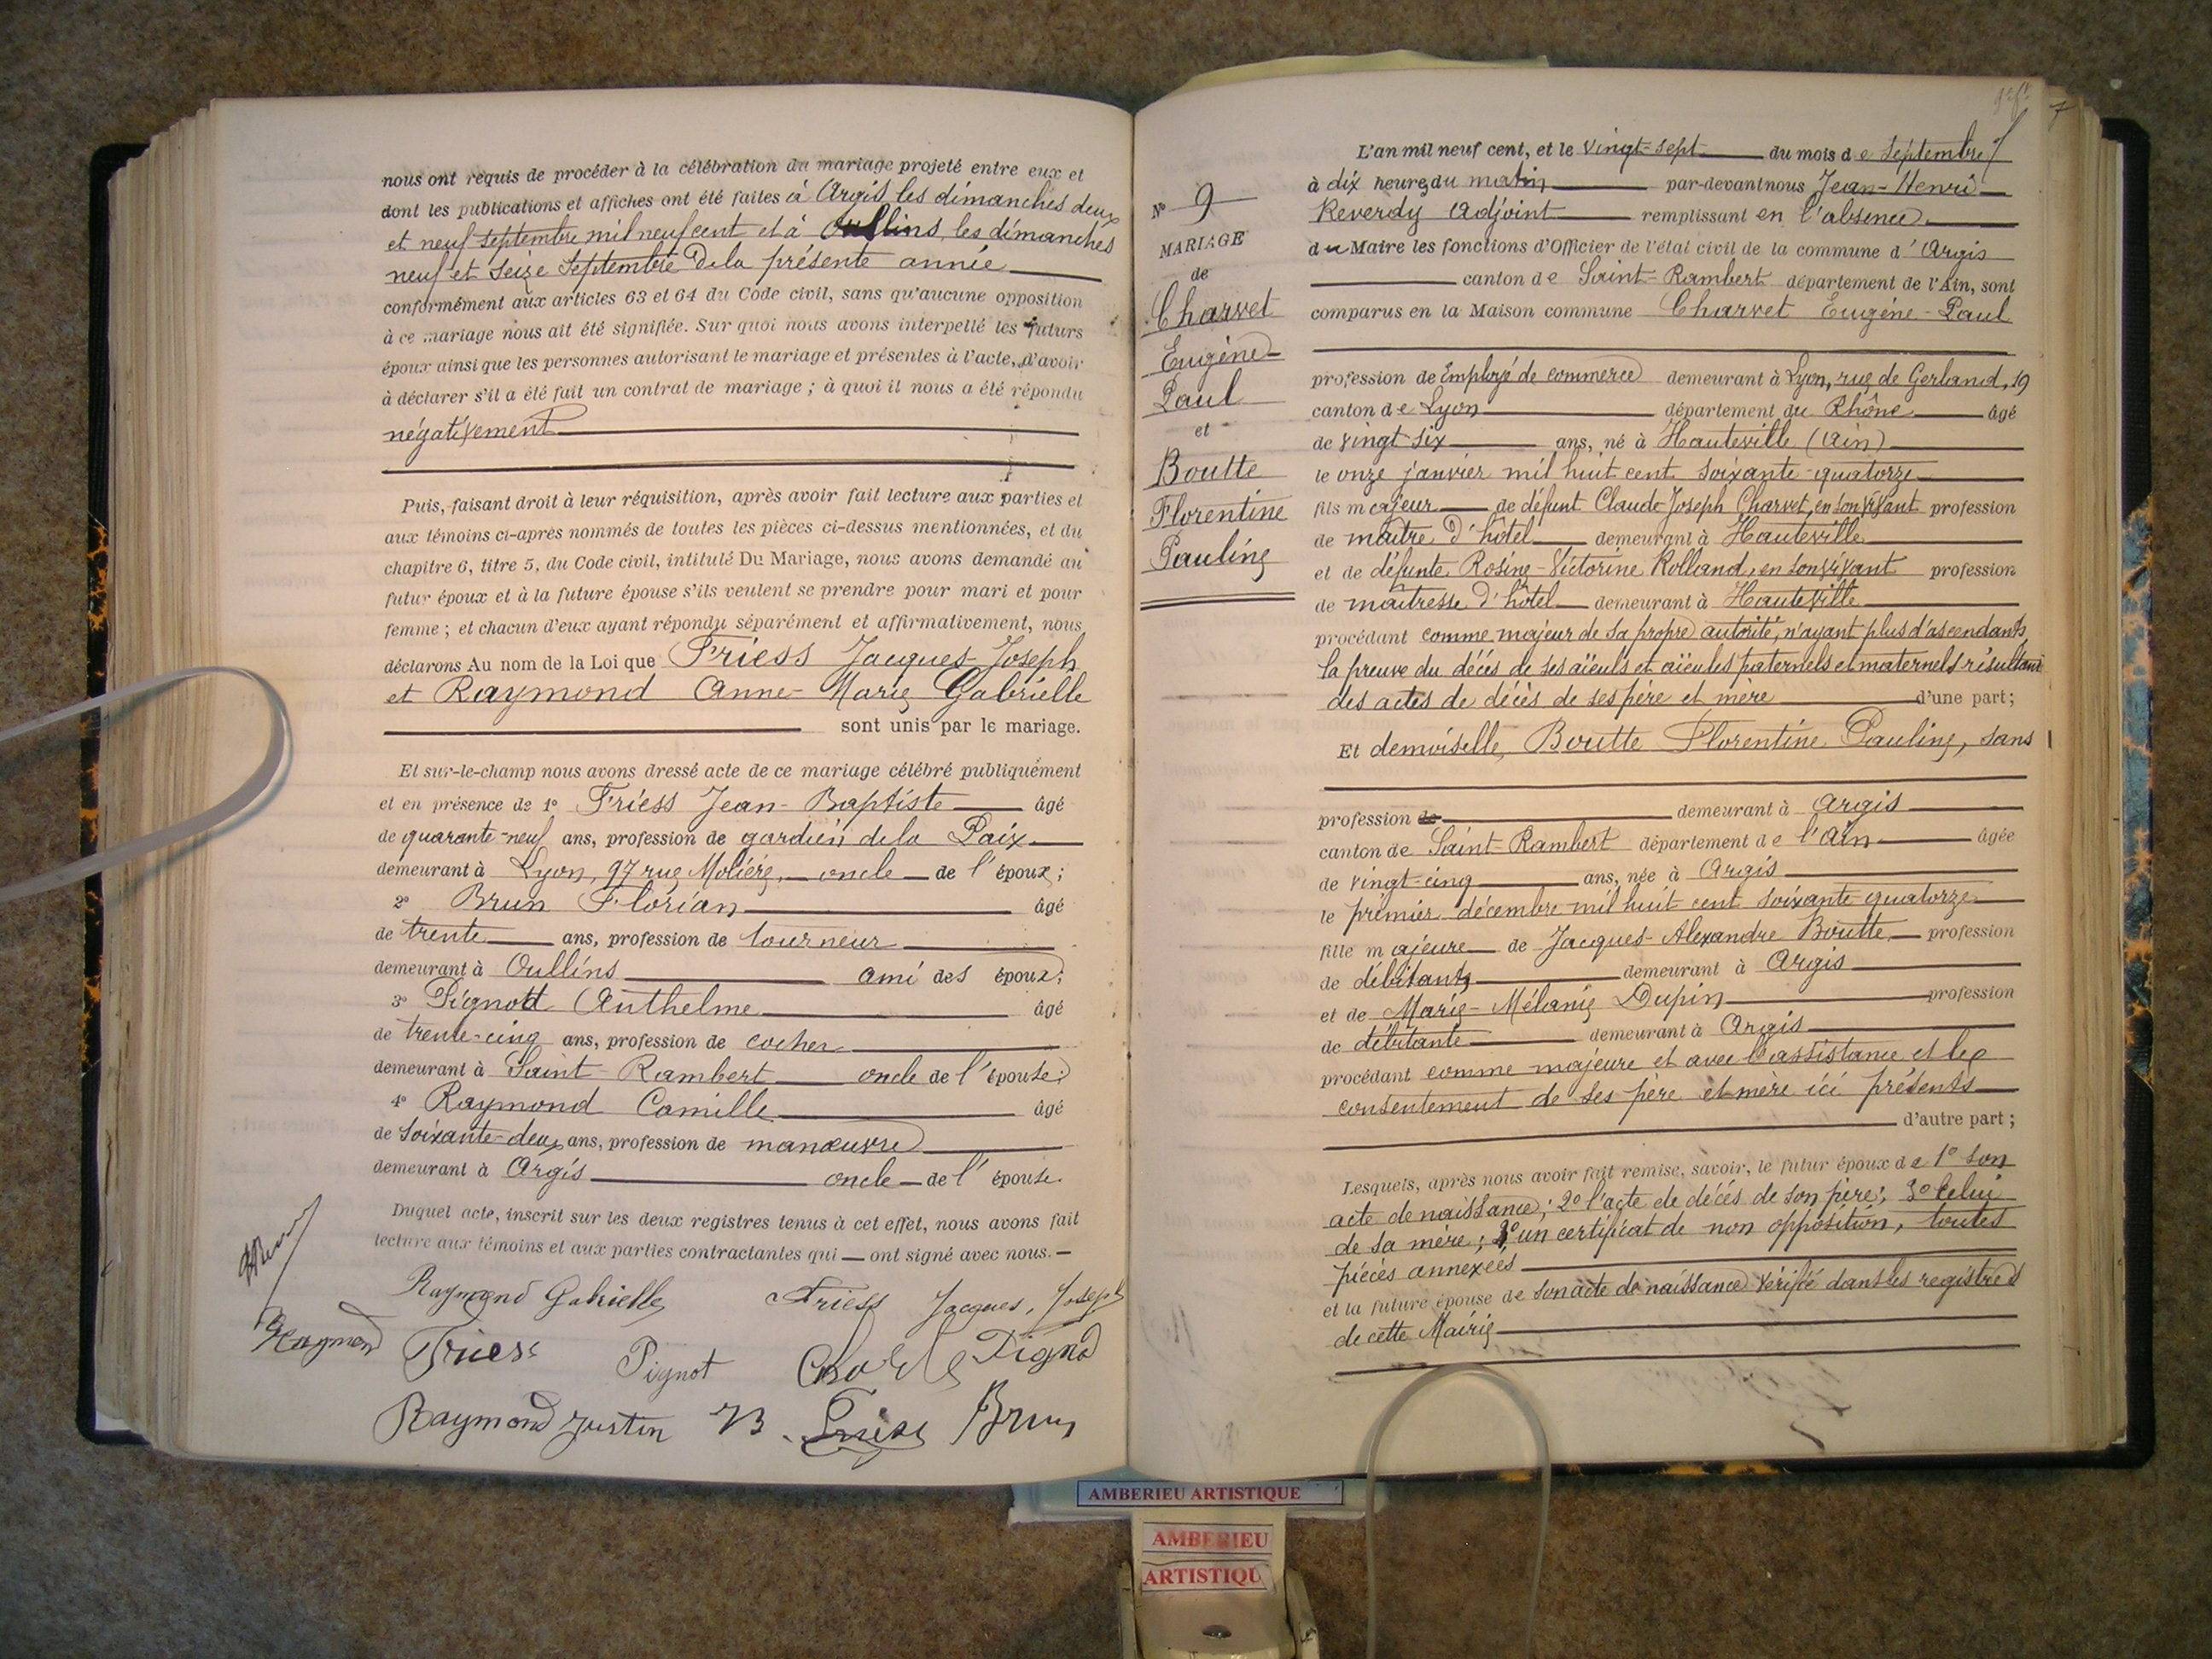 nous ont requis de procéder à la célébration du mariage projeté entre eux et
dont les publications et affiches ont été faites à Argis, les dimanches deux
et neuf septembre mil neuf cent et à Oullins, les dimanches
neuf et seize septembre de la présente année
conformément aux articles 63 et 64 du Code civil, sans qu'aucune opposition
à ce mariage nous ait été signifiée. Sur quoi nous avons interpellé les futurs
époux ainsi que les personnes autorisant le mariage et présentes à l'acte, d'avoir
à déclarer s'il a été fait un contrat de mariage ; à quoi il nous a été répondu
négativement
Puis, faisant droit à leur réquisition, après avoir fait lecture aux parties et
aux témoins ci-après nommés de toutes les pièces ci-dessus mentionnées, et du
chapitre 6, titre 5, du Code civil, intitulé Du Mariage, nous avons demandé au
futur époux et à la future épouse s'ils veulent se prendre pour mari et pour
femme ; et chacun d'eux ayant répondu séparément et affirmativement, nous
déclarons Au nom de la Loi que Friess Jacques-Joseph
et Raymond Anne-Marie Gabrielle
sont unis par le mariage.
Et sur-le-champ nous avons dressé acte de ce mariage célébré publiquement
et en présence de 1° Friess Jean-Baptiste âgé
de quarante-neuf ans, profession de gardien de la Paix
demeurant à Lyon, 97 rue Molière, oncle de l'époux ;
2° Brun Florian âgé
de trente ans, profession de tourneur
demeurant à Oullins ami des époux ;
3° Pignott Anthelme âgé
de trente-cinq ans, profession de cocher
demeurant à Saint-Rambert oncle de l'épouse ;
4° Raymond Camille âgé
de soixante-deux ans, profession de manœuvre
demeurant à Argis oncle de l'épouse.
Duquel acte, inscrit sur les deux registres tenus à cet effet, nous avons fait
lecture aux témoins et aux parties contractantes qui ont signé avec nous.
Raymond Gabrielle Friess Jacques, Joseph
Raymond Friess Pignot Pignod
Raymond Justin Friess Brun
7
N° 9
MARIAGE
de
Charvet
Eugène
Paul
et
Boutte
Florentine
Pauline
L'an mil neuf cent, et le vingt-sept du mois de septembre
à dix heures du matin par-devant nous Jean-Henri
Reverdy Adjoint remplissant en l'absence
du Maire les fonctions d'Officier de l'état civil de la commune d'Argis
canton de Saint-Rambert département de l'Ain, sont
comparus en la Maison commune Charvet Eugène-Paul
profession de Employé de commerce demeurant à Lyon, rue de Gerland, 19
canton de Lyon département du Rhône âgé
de vingt-six ans, né à Hauteville (Ain)
le onze janvier mil huit cent soixante-quatorze
fils majeur de défunt Claude Joseph Charvet, en son vivant profession
de maître d'hôtel demeurant à Hauteville
et de défunte Rosine-Victorine Rolland, en son vivant profession
de maîtresse d'hôtel demeurant à Hauteville
procédant comme majeur de sa propre autorité, n'ayant plus d'ascendants,
la preuve du décès de ses aïeuls et aïeules paternels et maternels résultant
des actes de décès de ses père et mère d'une part ;
Et demoiselle Boutte Florentine Pauline, sans
profession de demeurant à Argis
canton de Saint-Rambert département de l'Ain âgée
de vingt-cinq ans, née à Argis
le premier décembre mil huit cent soixante quatorze
fille majeure de Jacques-Alexandre Boutte profession
de débitant demeurant à Argis
et de Marie-Mélanie Dupin profession
de débitante demeurant à Argis
procédant comme majeure et avec l'assistance et le
consentement de ses père et mère ici présents
d'autre part ;
Lesquels, après nous avoir fait remise, savoir, le futur époux de 1° son
acte de naissance ; 2° l'acte de décès de son père ; 3° celui
de sa mère ; un certificat de non opposition, toutes
pièces annexées
et la future épouse de son acte de naissance vérifié dans les registres
de cette Mairie
AMBERIEU ARTISTIQUE
AMBERIEU
ARTISTIQU